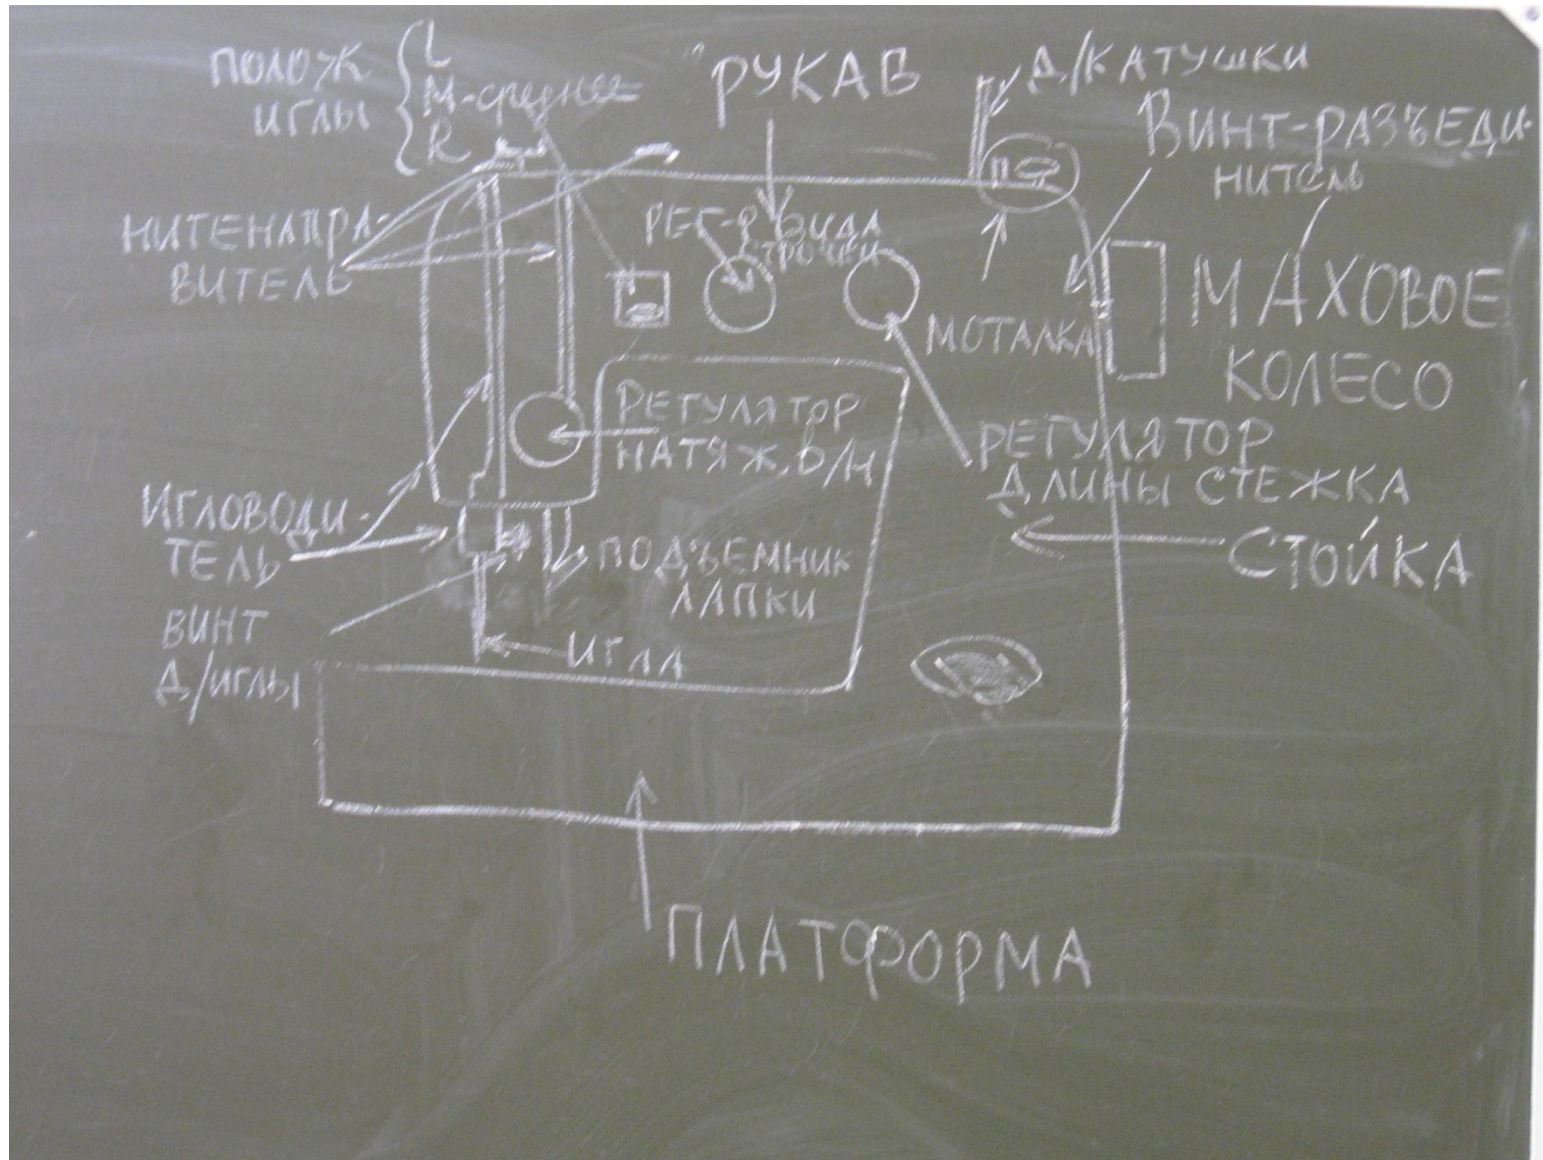 ПОЛОЖ
ИГЛЫ
L
М-среднее
R
РУКАВ
Д/КАТУШКИ
ВИНТ-РАЗЪЕДИ-
НИТЕЛЬ
НИТЕНАПРА-
ВИТЕЛЬ
РЕГ-Р ВИДА
СТРОЧКИ
МОТАЛКА
МАХОВОЕ
КОЛЕСО
РЕГУЛЯТОР
НАТЯЖ. В/Н
РЕГУЛЯТОР
ДЛИНЫ СТЕЖКА
ИГЛОВОДИ-
ТЕЛЬ
ПОДЪЕМНИК
ЛАПКИ
СТОЙКА
ВИНТ
Д/ИГЛЫ
ИГЛА
ПЛАТФОРМА